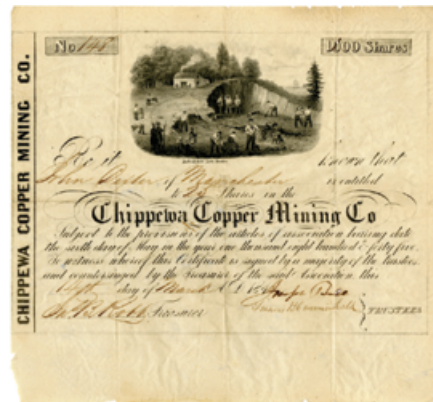 CHIPPEWA COPPER MINING CO.
No 145
1,500 Shares
Be it known that
John Carter of Manchester is entitled
to 25 Shares in the
Chippewa Copper Mining Co
Subject to the provisions of the articles of association bearing date
the sixth day of May in the year one thousand eight hundred & forty five.
In witness whereof this Certificate is signed by a majority of the trustees
and countersigned by the Treasurer of the said Association this
day of March
Treasurer
TRUSTEES